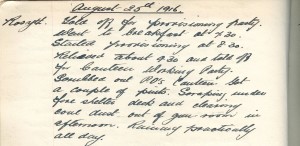 August 25th 1916.
Rosyth. Told off for provisioning Party.
Went to breakfast at 7.30.
Started provisioning at 8.30.
Released about 9.30 and told off
for Canteen Working Party.
Scrubbed out P.O's. Canteen Got
a couple of pints. Scraping under
fore shelter deck and clearing
coal dust out of gun room in
afternoon. Raining practically
all day.